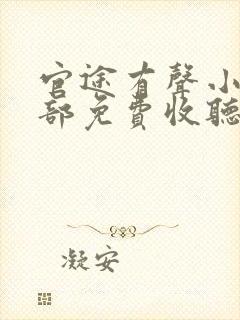 官途有聲小
部免費收聽
凝安